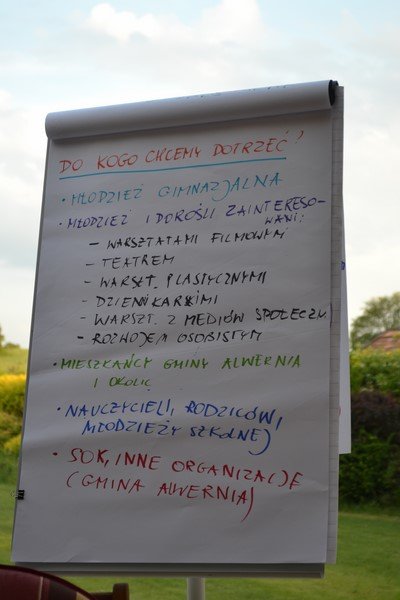 DO KOGO CHCEMY DOTRZEĆ!
• MŁODZIEŻ GIMNAZJALNA
• MŁODZIEŻ I DOROŚLI ZAINTERESO-
WANI:
- WARSZTATAMI FILMOWYMI
- TEATREM
- WARSZT. PLASTYCZNYMI
- DZIENNIKARKIMI
- WARSZT. Z MEDIÓW SPOŁECZN.
- ROZWOJEM OSOBISTYM
• MIESZKAŃCY GMINY ALWERNIA
I OKOLIC
• NAUCZYCIELI, RODZICÓW,
MŁODZIEŻY SZKOLNEJ
• SOK, INNE ORGANIZACJE
(GMINA ALWERNIA)